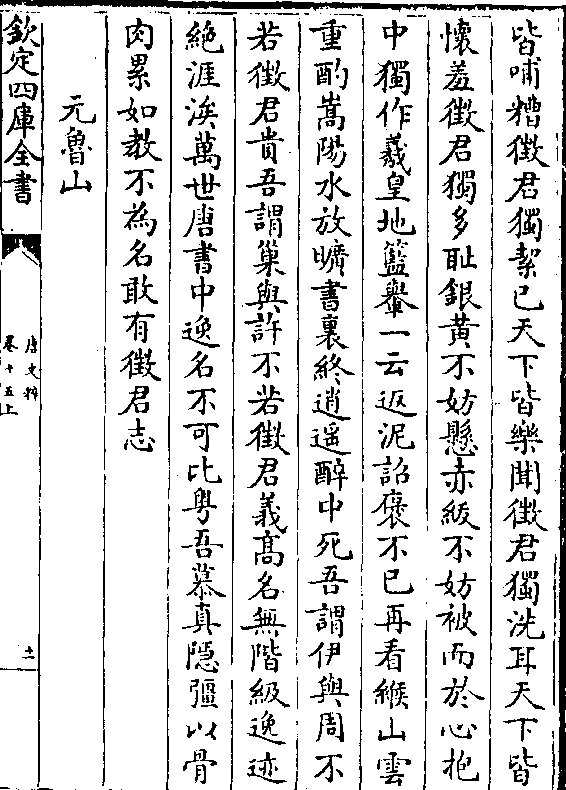 皆哺糟徵君獨絜已天下皆樂聞徵君獨洗耳天下皆
懷羞徵君獨多耻銀黃不妨懸赤紱不妨被而於心抱
中獨作羲皇地籃轝一云返泥詔褒不已再看緱山雲
重酌嵩陽水放曠書裏終逍遥醉中死吾謂伊與周不
若徵君貴吾謂巢與許不若徵君義髙名無階級逸迹
絶涯涘萬世唐書中逸名不可比粤吾慕真隠彊以骨
肉累如教不為名敢有徵君志
元魯山
欽定四庫全書
唐文粹
卷十五上
十一